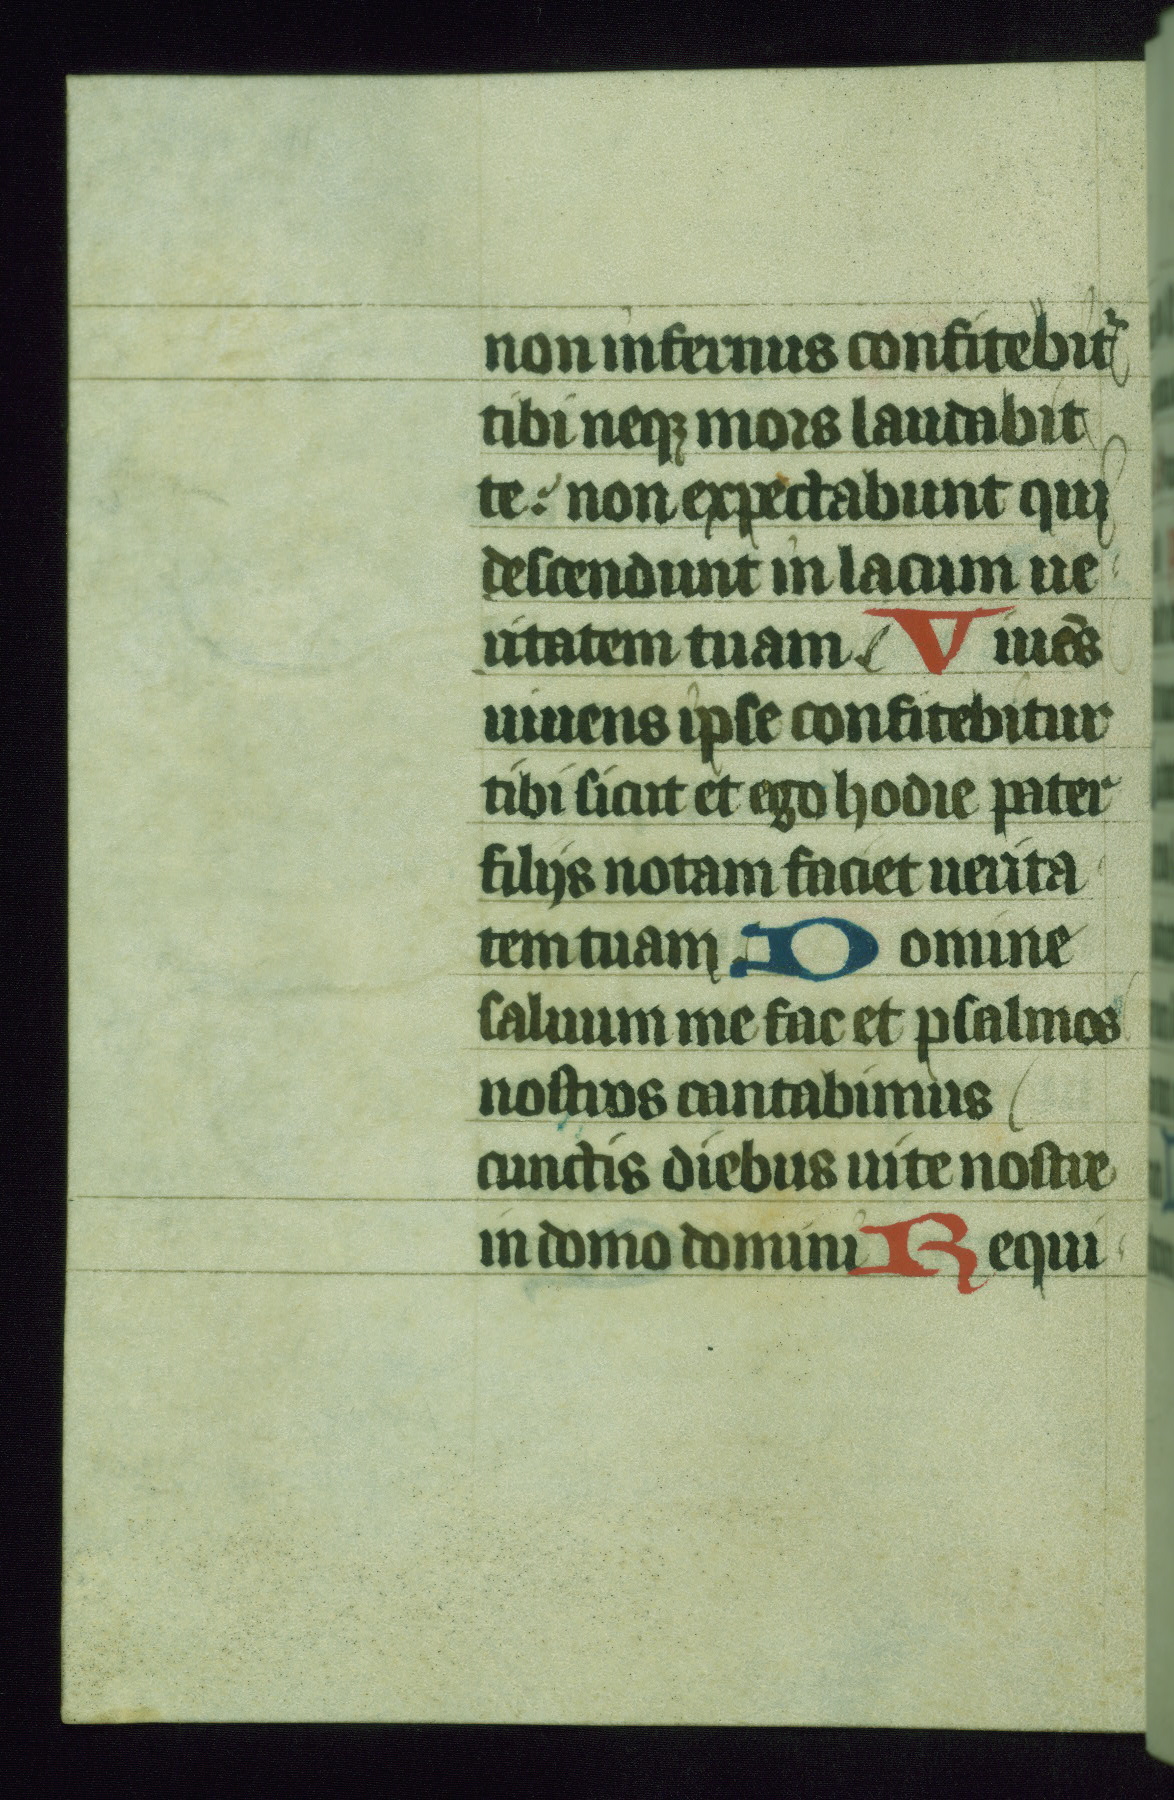 non infernus confitebit᷑
tibi neqꝫ mors laudabit
te: non expectabunt qui
descendunt in lacum ue
ritatem tuam. Viuēs
uiuens ipse confitebitur
tibi sicut et ego hodie pater
filijs notam faciet uerita
tem tuam. Domine
saluum me fac et psalmos
nostros cantabimus
cunctis diebus uite nostre
in domo domini Requi